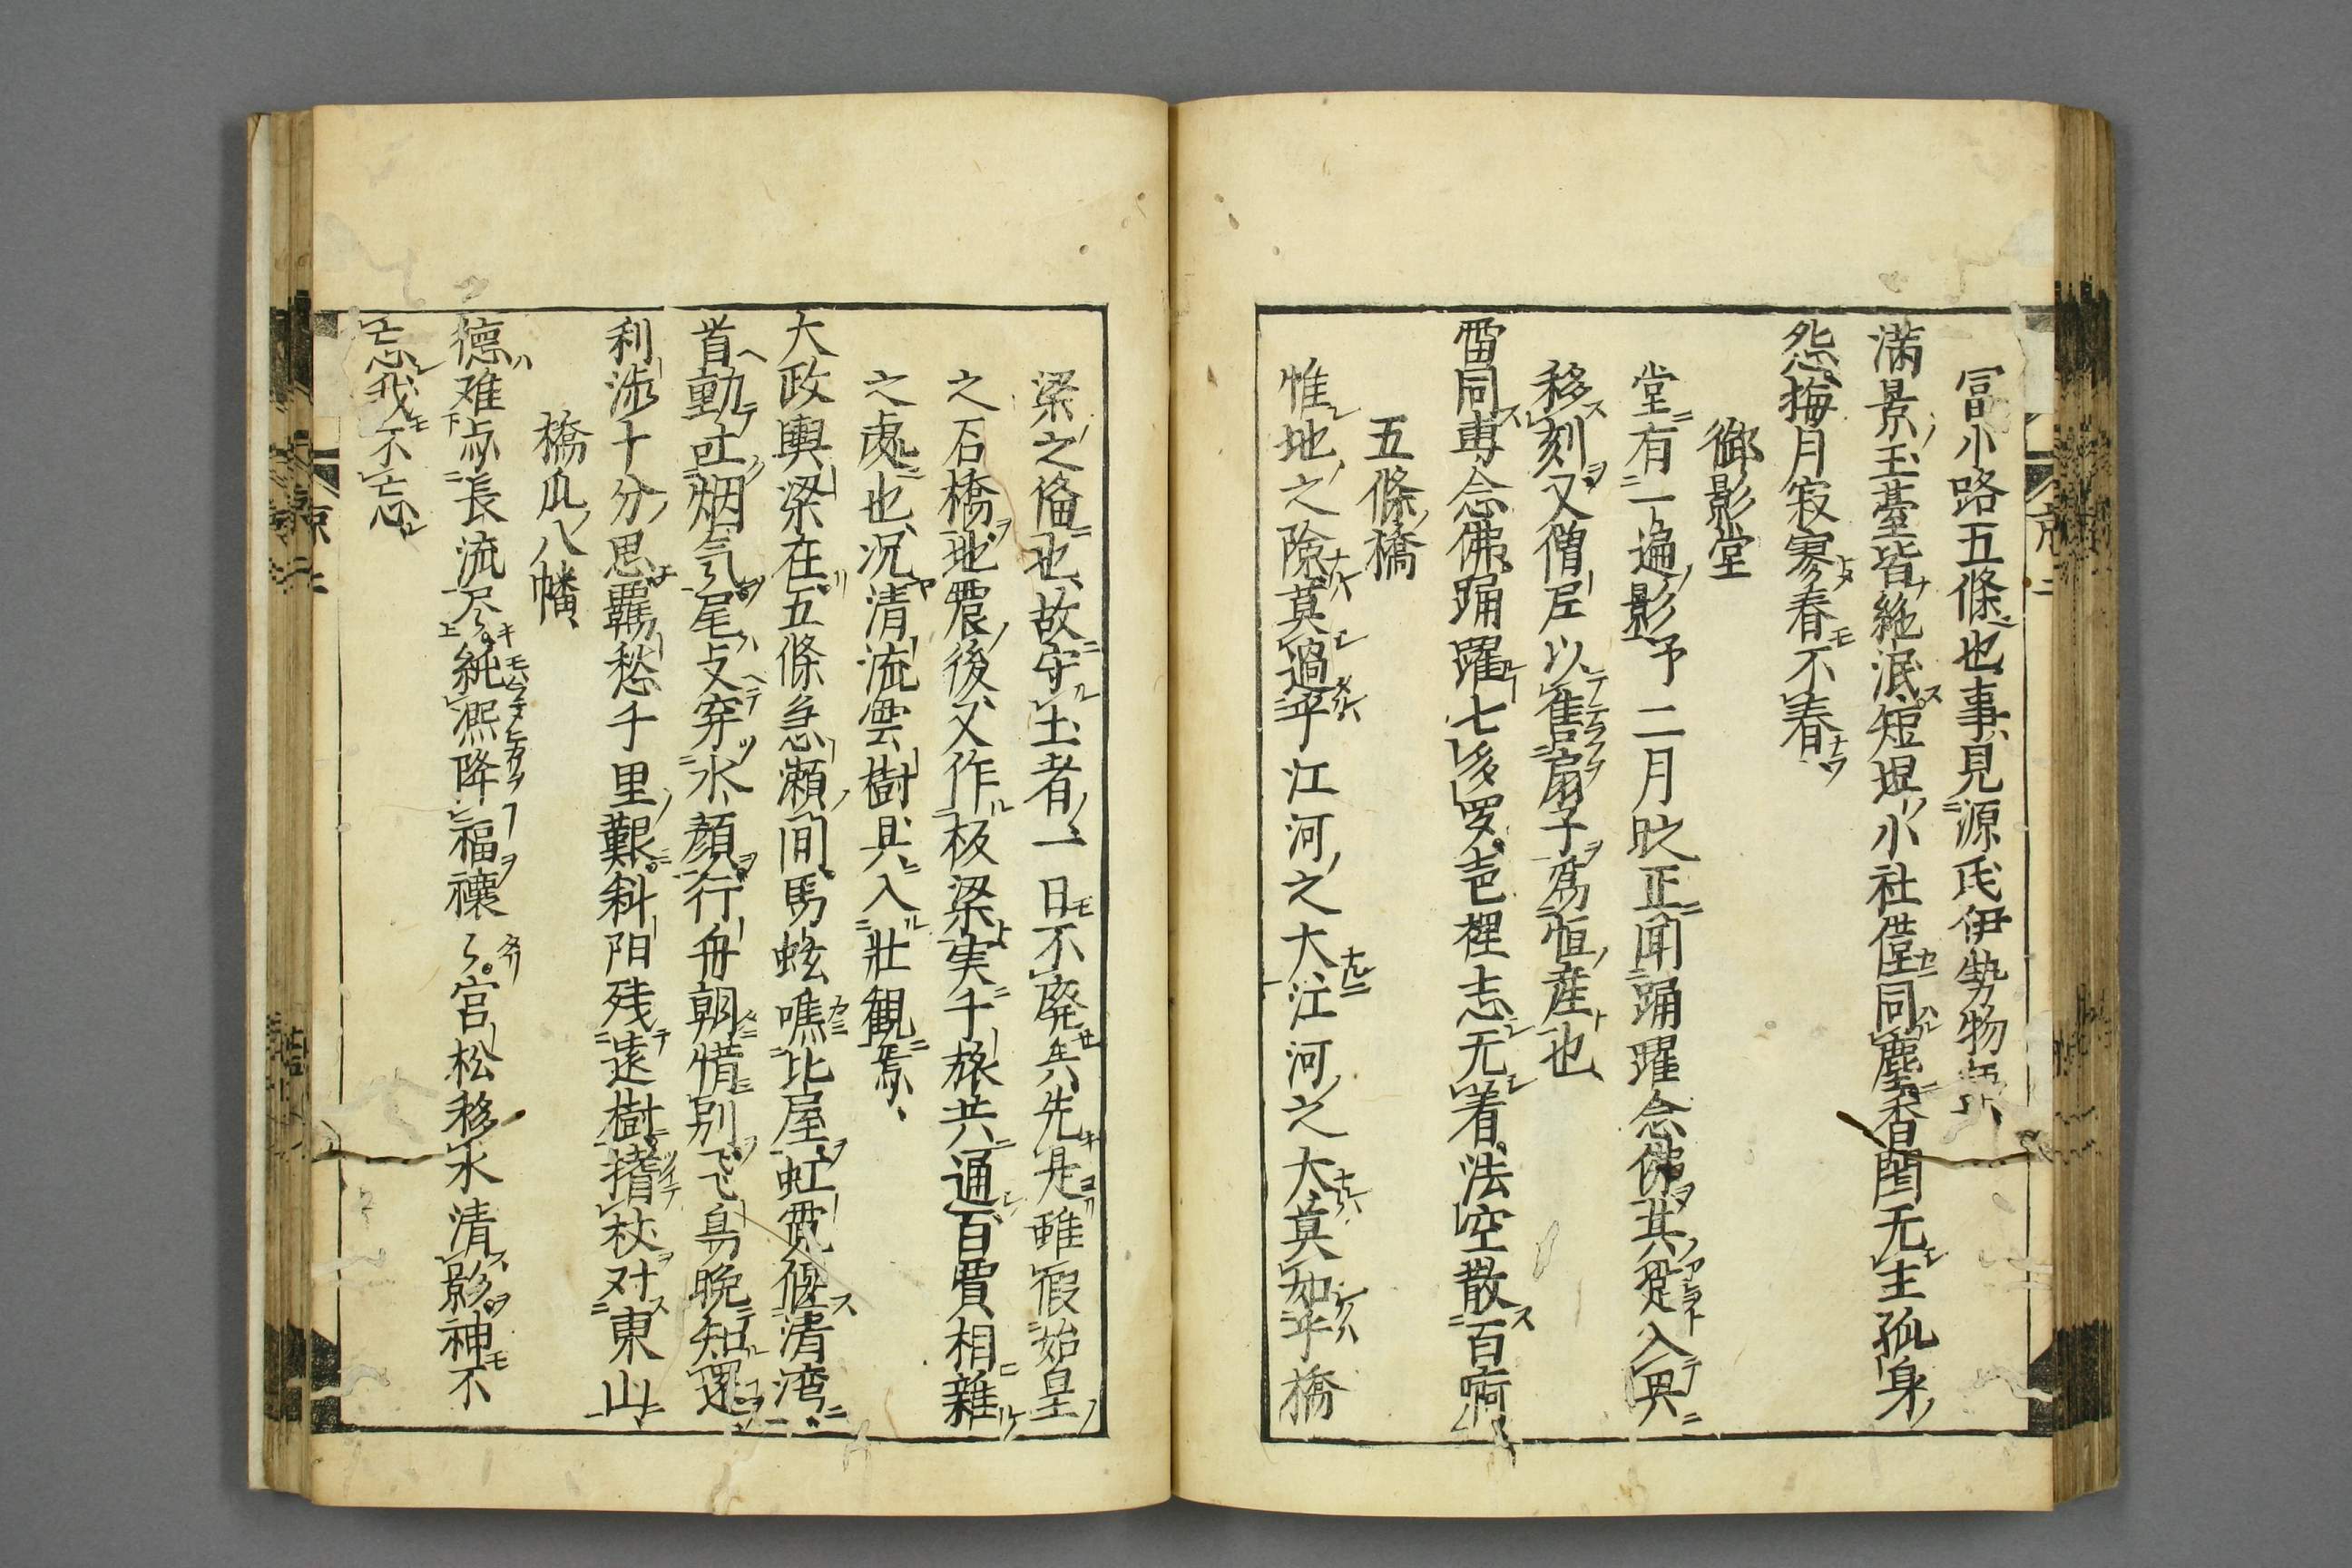 冨小路五條也事見源氏伊勢物語
滿景玉臺皆絶泯短垣小社僅同塵香閨无主孤身
怨梅月寂寥春不春
御影堂
堂有一遍影予二月之正聞踊躍念佛其從入興
移刻又僧尼以售扇子爲恒産也
雷同専念佛踊躍七多罗壱裡志无着法空散百痾
五條橋
惟地之險莫過乎江河之大江河之大莫如乎橋
梁之俻也故守土者一日不廃矣先是雖假始皇
之石橋地震後又作板梁実千旅共通百賈相雜
之處也況清流雲樹具入壯観焉
大政輿梁在五條急瀬間馬蛟噍比屋虹霓偃清湾
首動吐烟气尾攴穿水顔行舟朝惜別飞鳥晩知還
利渉十分思羈愁千里艱斜阳残遠樹搘杖对東山
橋爪八幡
德难点長流尽純熈降福禳〻宮松移水清影神不
忘我不忘